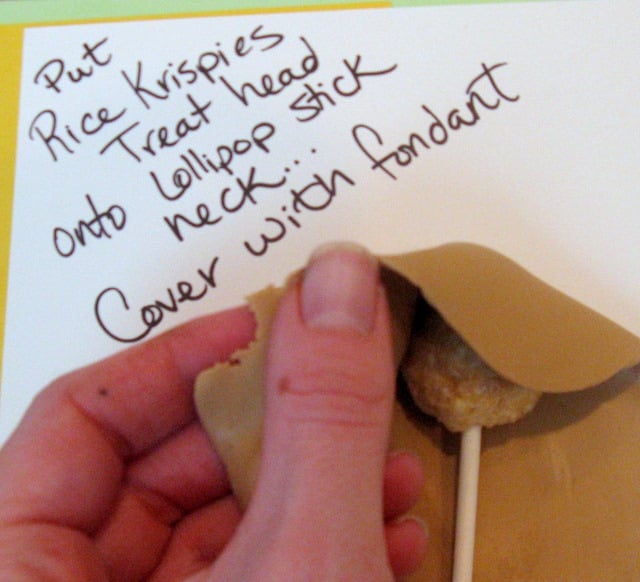 Put
Rice Krispies
Treat head
onto Lollipop stick
neck...
Cover with fondant